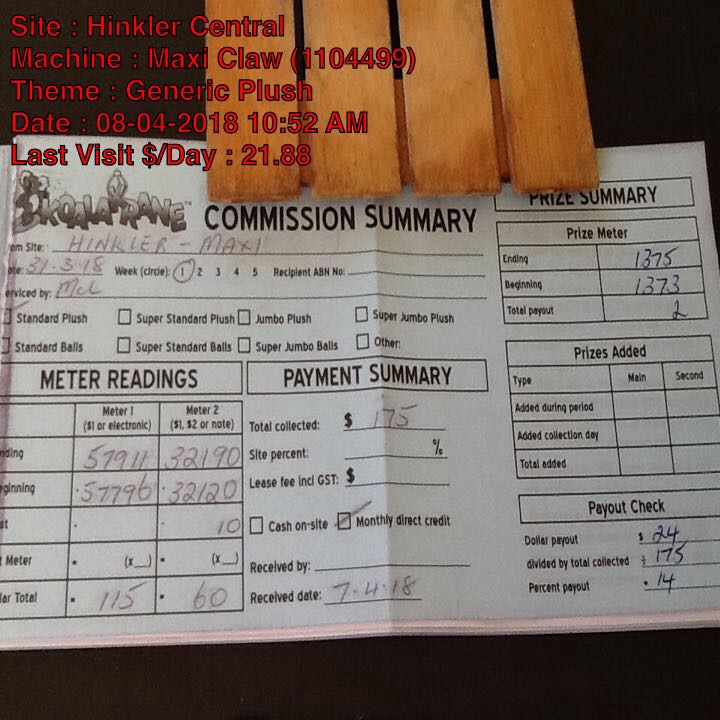 Site : Hinkler Central
Machine : Maxi Claw (1104499)
Theme : Generic Plush
Date : 08-04-2018 10:52 AM
Last Visit $/Day : 21.88
KOALA KRANE™
COMMISSION SUMMARY
om Site: HINKLER - MAXI
te: 31.3.18 Week (circle): 1 2 3 4 5 Recipient ABN No:
erviced by:
Standard Plush Super Standard Plush Jumbo Plush Super Jumbo Plush
Standard Balls Super Standard Balls Super Jumbo Balls Other:
METER READINGS
Meter 1 Meter 2
($1 or electronic) ($1, $2 or note)
nding 57911 32190
ginning 57796 32120
st 10
t Meter (x__) (x__)
lar Total 115 60
PAYMENT SUMMARY
Total collected: $ 175
Site percent: %
Lease fee incl GST: $
Cash on-site Monthly direct credit
Received by:
Received date: 7.4.18
PRIZE SUMMARY
Prize Meter
Ending 1375
Beginning 1373
Total payout 2
Prizes Added
Type Main Second
Added during period
Added collection day
Total added
Payout Check
Dollar payout $ 24
divided by total collected ÷ 175
Percent payout . 14